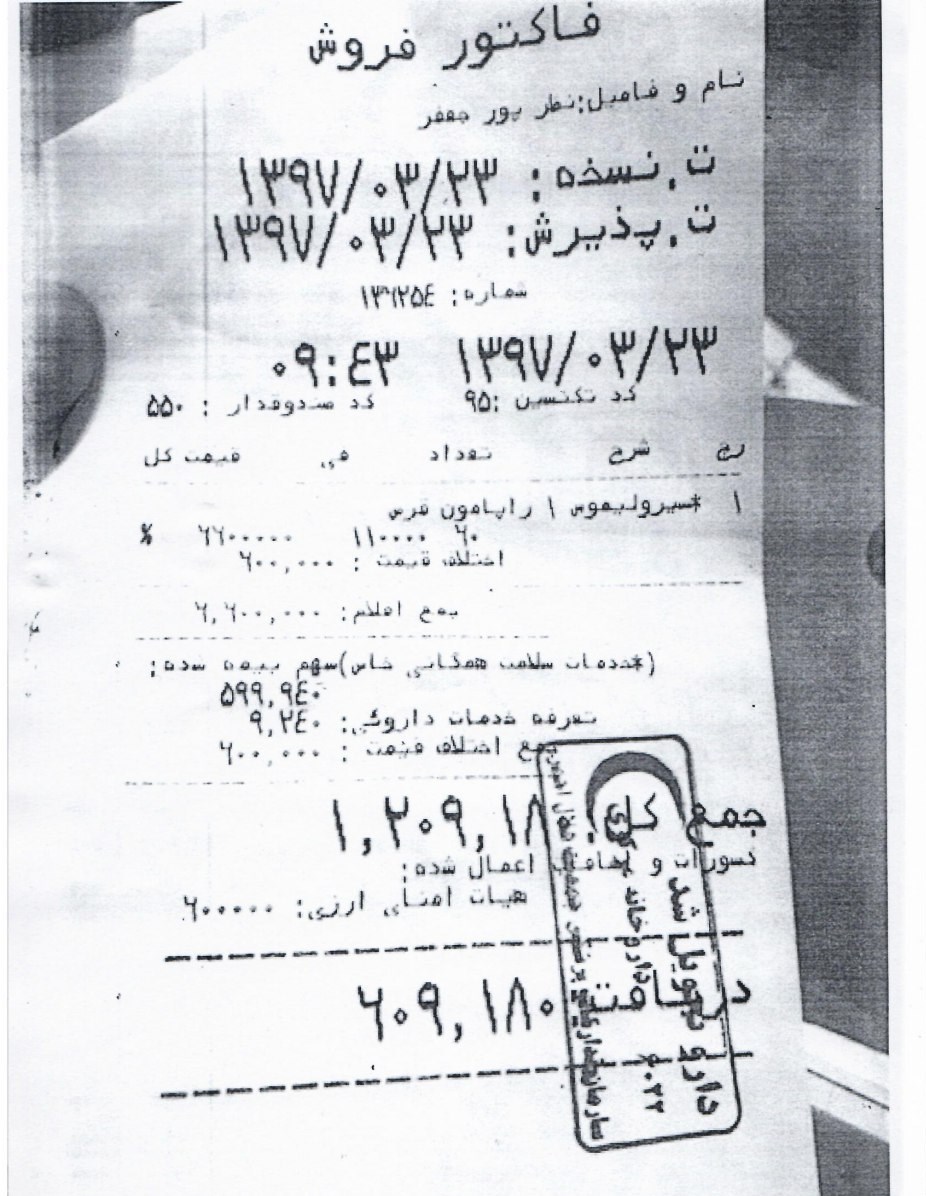 فاکتور فروش
نام و فامیل:نظر پور جعفر
ت.نسخه: ۱۳۹۷/۰۳/۲۳
ت.پذیرش: ۱۳۹۷/۰۳/۲۳
شماره:
۱۳۹۷/۰۳/۲۳ ۰۹:٤۳
کد تکنسین :۹۵ کد صندوقدار : ۵۵۰
رج شرح تعداد فی قیمت کل
۱ *سیرولیموس \ راپامون قرص
٦۰ ۱۱۰۰۰۰ ٦٦۰۰۰۰۰ %
اختلاف قیمت : ٦۰۰,۰۰۰
جمع اقلام: ٦,٦۰۰,۰۰۰
(*خدمات سلامت همگانی خاص)سهم بیمه شده:
۵۹۹,۹٤۰
تعرفه خدمات داروئی: ۹,۲٤۰
جمع اختلاف قیمت : ٦۰۰,۰۰۰
جمع کل: ۱,۲۰۹,۱۸۰
کسورات و اضافات اعمال شده:
هیات امنای ارزی: ٦۰۰۰۰۰
دریافت: ٦۰۹,۱۸۰
دارو تحویل شد
داروخانه